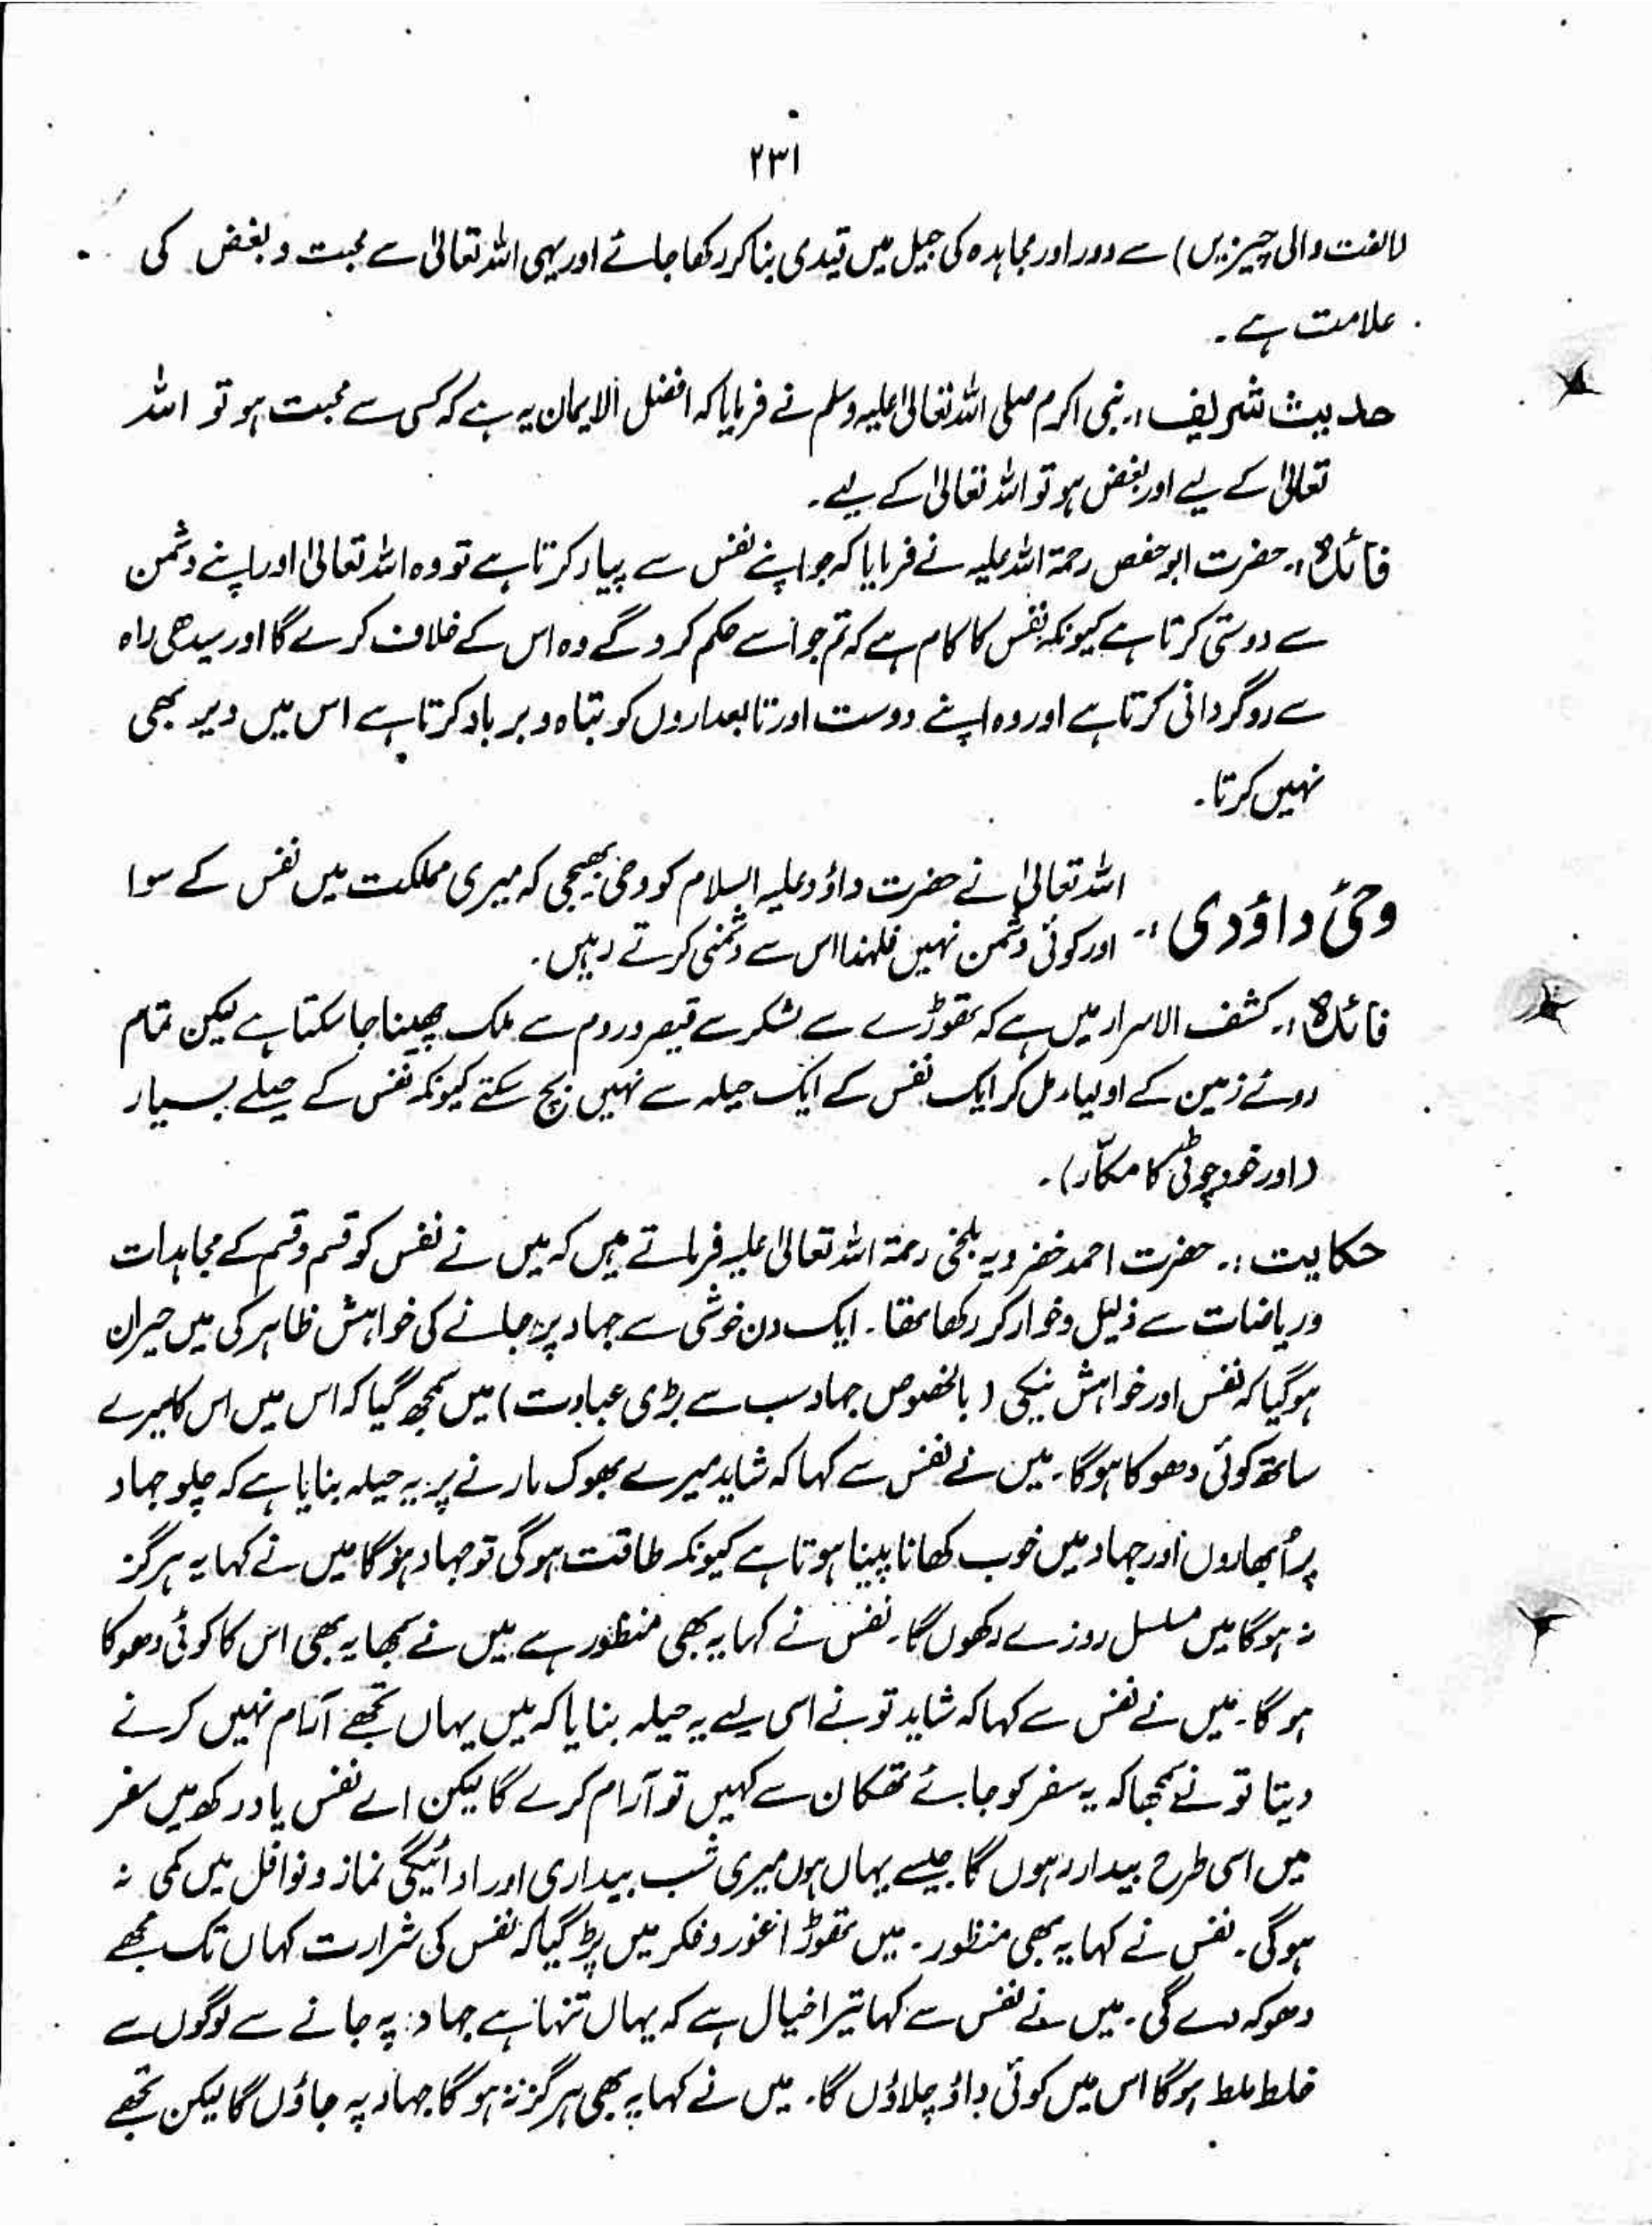 ۲۳۱
(الفت والی چیزیں) سے دور اور مجاہدہ کی جیل میں قیدی بنا کر رکھا جائے اور یہی اللہ تعالیٰ سے محبت و بغض کی
علامت ہے۔
حدیث شریف :۔ نبی اکرم صلی اللہ تعالیٰ علیہ وسلم نے فرمایا کہ افضل الایمان یہ ہے کہ کسی سے محبت ہو تو اللہ
تعالیٰ کے لیے اور بغض ہو تو اللہ تعالیٰ کے لیے۔
فائدہ :۔ حضرت ابو حفص رحمۃ اللہ علیہ نے فرمایا کہ جو اپنے نفس سے پیار کرتا ہے تو وہ اللہ تعالیٰ اور اپنے دشمن
سے دوستی کرتا ہے کیونکہ نفس کا کام ہے کہ تم جو اسے حکم کرو گے وہ اس کے خلاف کرے گا اور سیدھی راہ
سے روگردانی کرتا ہے اور وہ اپنے دوست اور تابعداروں کو تباہ و برباد کرتا ہے اس میں دیر بھی
نہیں کرتا۔
وحیٔ داؤدی :۔ اللہ تعالیٰ نے حضرت داؤد علیہ السلام کو وحی بھیجی کہ میری مملکت میں نفس کے سوا
اور کوئی دشمن نہیں فلہٰذا اس سے دشمنی کرتے رہیں۔
فائدہ :۔ کشف الاسرار میں ہے کہ تھوڑے سے لشکر سے قیصر و روم سے ملک چھینا جا سکتا ہے لیکن تمام
روئے زمین کے اولیاء مل کر ایک نفس کے ایک حیلہ سے نہیں بچ سکتے کیونکہ نفس کے حیلے بسیار
(اور خود چوٹی کا مکّار)۔
حکایت :۔ حضرت احمد خضرویہ بلخی رحمۃ اللہ تعالیٰ علیہ فرماتے ہیں کہ میں نے نفس کو قسم و قسم کے مجاہدات
و ریاضات سے ذلیل و خوار کر رکھا تھا۔ ایک دن خوشی سے جہاد پر جانے کی خواہش ظاہر کی میں حیران
ہو گیا کہ نفس اور خواہش نیکی (بالخصوص جہاد سب سے بڑی عبادت) میں سمجھ گیا کہ اس میں اس کا میرے
ساتھ کوئی دھوکا ہو گا۔ میں نے نفس سے کہا کہ شاید میرے بھوک مارنے پر یہ حیلہ بنایا ہے کہ چلو جہاد
پر اُبھاروں اور جہاد میں خوب کھانا پینا ہوتا ہے کیونکہ طاقت ہو گی تو جہاد ہو گا میں نے کہا یہ ہرگز
نہ ہو گا میں مسلسل روزے رکھوں گا۔ نفس نے کہا یہ بھی منظور ہے میں نے سمجھا یہ بھی اس کا کوئی دھوکا
ہو گا۔ میں نے نفس سے کہا کہ شاید تو نے اسی لیے یہ حیلہ بنایا کہ میں یہاں تجھے آرام نہیں کرنے
دیتا تو نے سمجھا کہ یہ سفر کو جائے تھکان سے کہیں تو آرام کرے گا لیکن اے نفس یاد رکھ میں سفر
میں اسی طرح بیدار رہوں گا جیسے یہاں ہوں میری شب بیداری اور ادائیگی نماز و نوافل میں کمی نہ
ہو گی۔ نفس نے کہا یہ بھی منظور۔ میں تھوڑا غور و فکر میں پڑ گیا کہ نفس کی شرارت کہاں تک مجھے
دھوکہ دے گی۔ میں نے نفس سے کہا تیرا خیال ہے کہ یہاں تنہا ہے جہاد پہ جانے سے لوگوں سے
خلط ملط ہو گا اس میں کوئی داؤ چلاؤں گا۔ میں نے کہا یہ بھی ہرگز نہ ہو گا جہاد پہ جاؤں گا لیکن تجھے